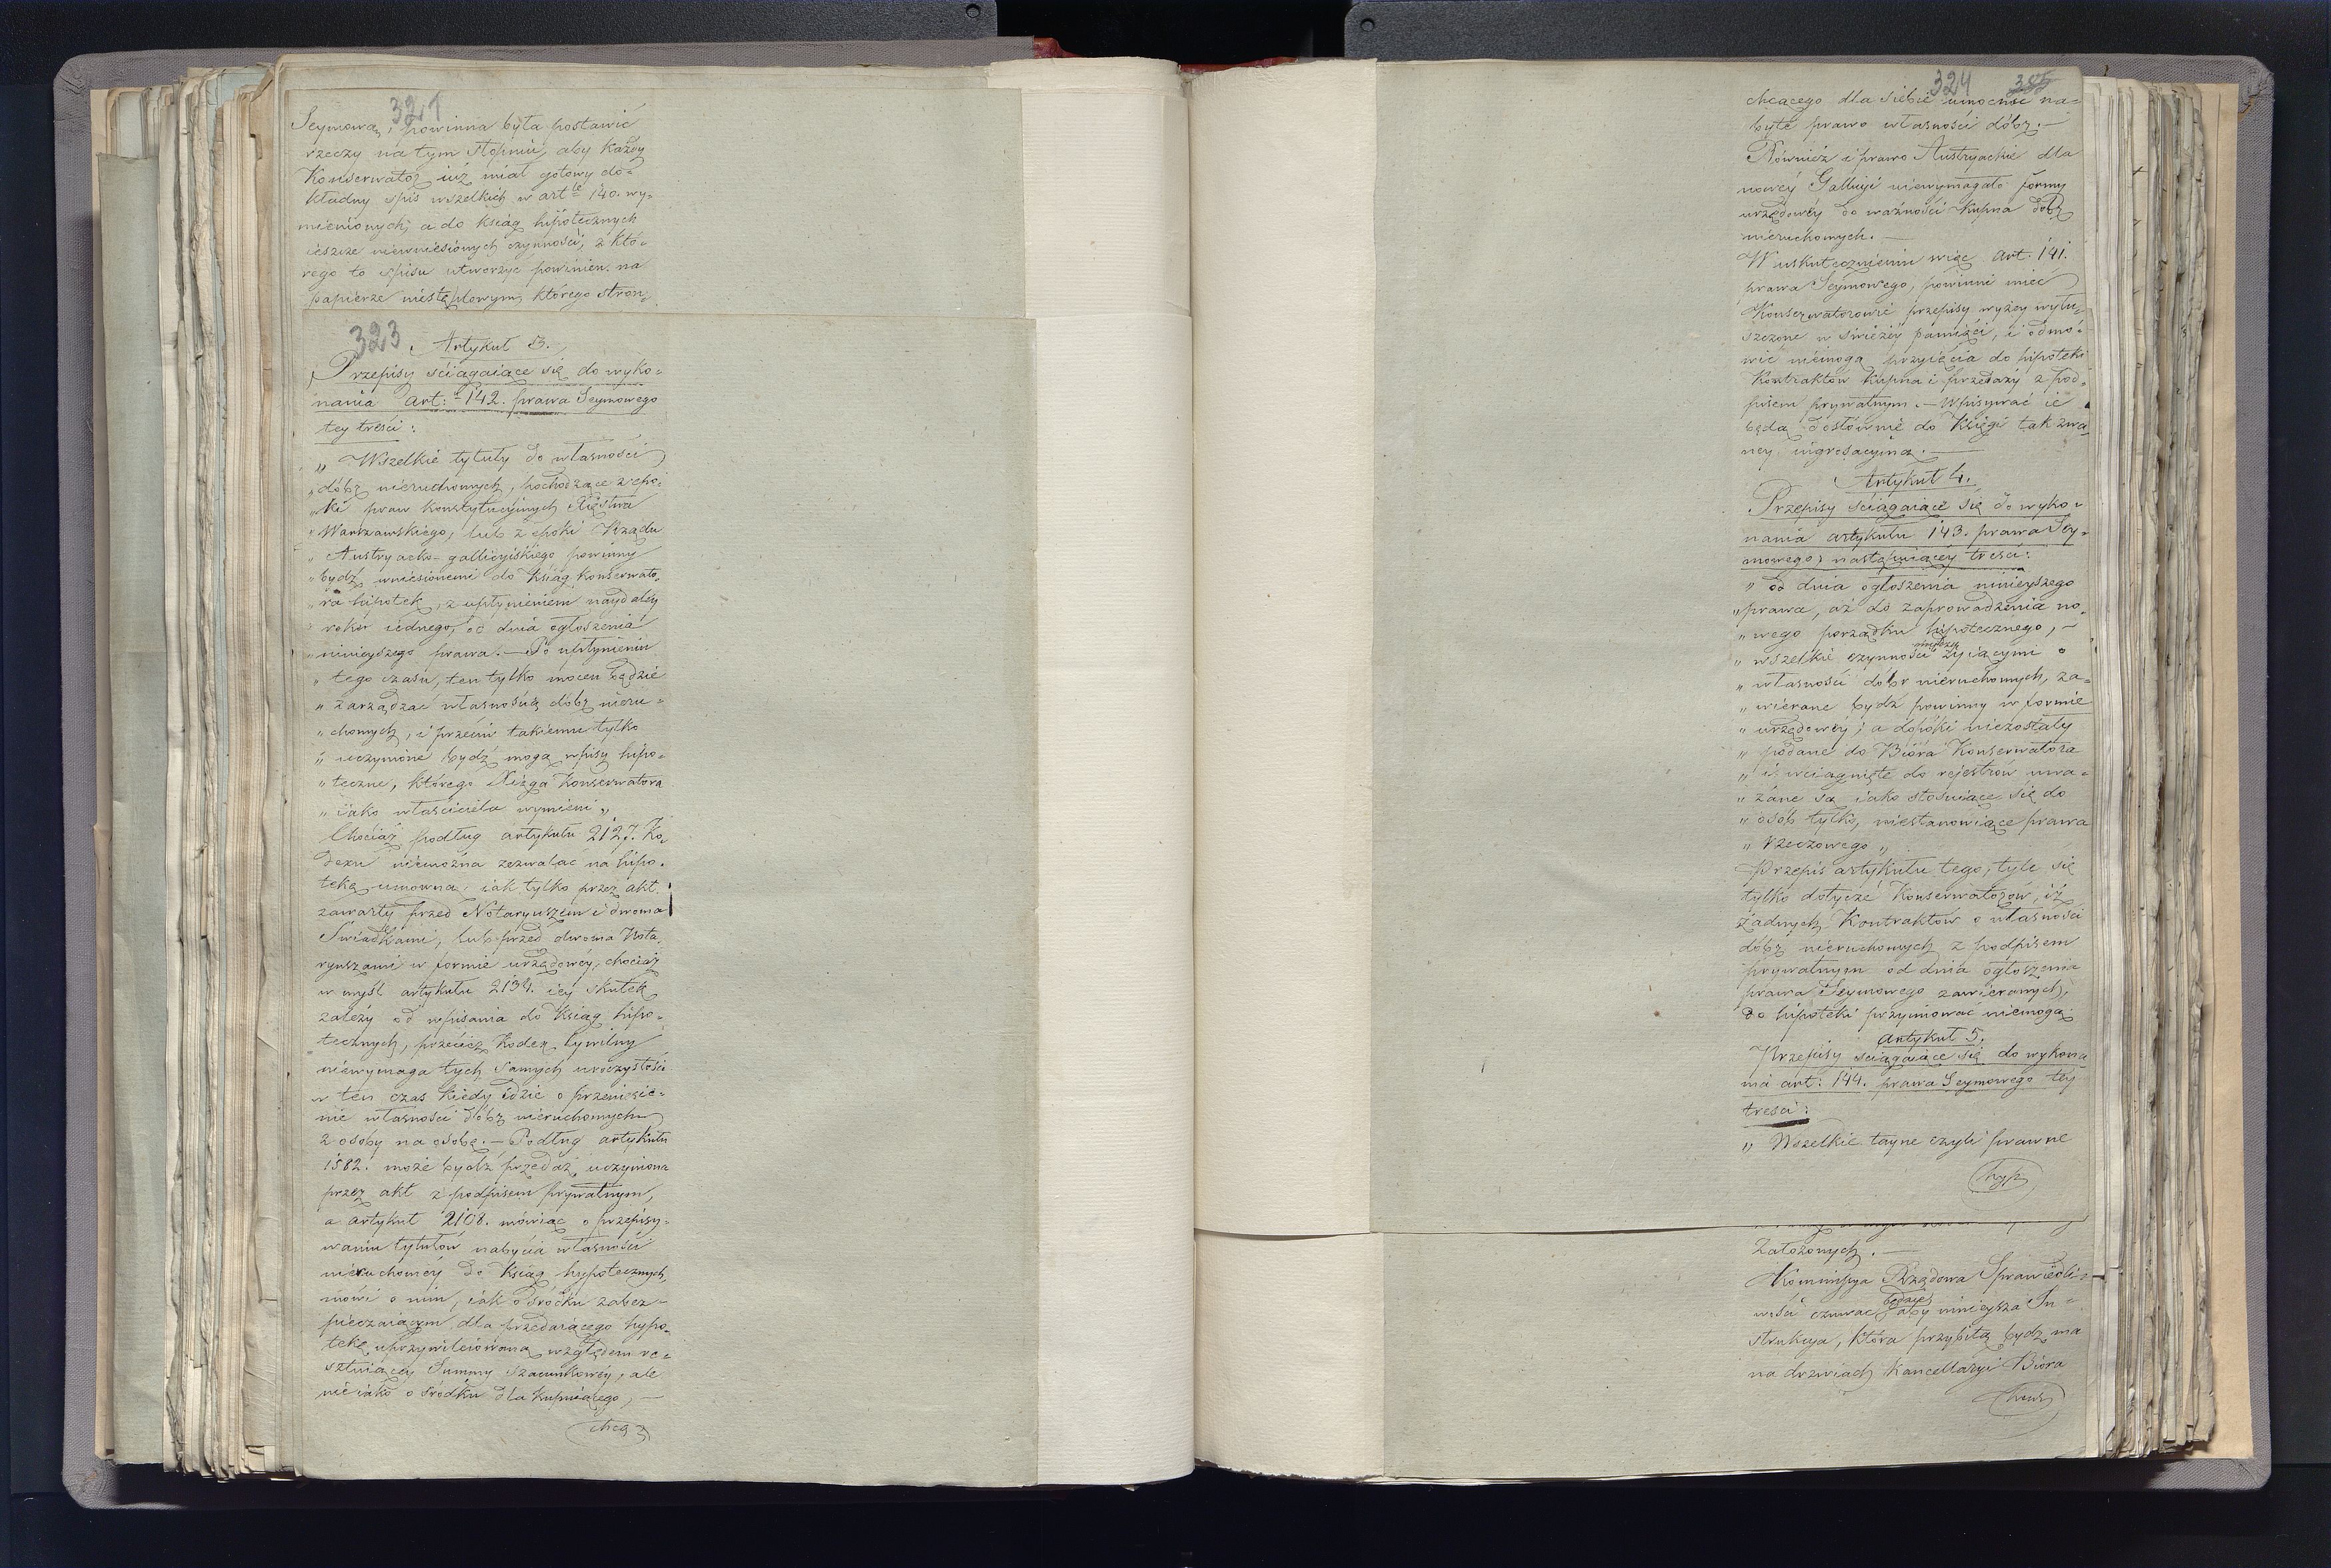 321
Seymowa, powinna była postawić
rzeczy na tym stopniu, aby każdy
Konserwator iuż miał gotowy do=
kładny spis wszelkich w art<sup>le</sup> 140. wy=
mienionych, a do ksiąg hipotecznych
ieszcze niewniesionych czynności, z któ=
rego to spisu utworzyć powinien na
papierze niestęplowym, którego stron=
323
Artykuł 3.
Przepisy ściągaiące się do wyko=
nania art: 142. prawa Seymowego
tey treści:
„ Wszelkie tytuły do własności
„ dóbr nieruchomych, pochodzące z epo=
„ ki praw konstytucyinych Xięstwa
„ Warszawskiego, lub z epoki Rządu
„ Austryacko-gallicyiskiego powinny
„ bydź wniesionemi do ksiąg Konserwato=
„ ra hipotek, z upłynieniem naydaléy
„ roku iednego, od dnia ogłoszenia
„ ninieyszego prawa. — Po upłynieniu
„ tego czasu, ten tylko mocen będzie
„ zarządzać własnością dóbr nieru=
„ chomych, i przeciw takiemu tylko
„ uczynione bydź mogą wpisy hipo=
„ teczne, którego Xięga Konserwatora
„ iako właściciela wymieni „
Chociaż podług artykułu 2127. Ko=
dexu niemożna zezwalać na hipo=
tekę umowną, iak tylko przez akt
zawarty przed Notaryuszem i dwoma
Świadkami, lub przed dwoma Nota=
ryuszami w formie urzędowéy, chociaż
w myśl artykułu 2134. iéy skutek
zależy od wpisania do Ksiąg hipo=
tecznych, przecież Kodex Cywilny
niewymaga tych samych uroczystości
w ten czas kiedy idzie o przeniesie=
nie własności dóbr nieruchomych
z osoby na osobę. — Podług artykułu
1582. może bydź przedaż uczyniona
przez akt z podpisem prywatnym,
a artykuł 2108. mówiąc o przepisy=
waniu tytułów nabycia własności
nieruchoméy do Ksiąg hypotecznych
mówi o nim, iak o środku zabez=
pieczaiącym dla przedaiącego hypo=
tekę uprzywileiowaną względem re=
sztuiącéy Summy szacunkowéy, ale
nie iako o środku dla kupuiącego, —
chcą
324 385
chcącego dla siebie umocnić na=
byte prawo własności dóbr. —
Również i prawo Austryackie dla
nowéy Gallicyi niewymagało formy
urzędowéy do ważności Kupna dóbr
nieruchomych. —
W uskutecznieniu więc art. 141.
prawa Seymowego, powinni mieć
Konserwatorowie przepisy wyżey wytu=
szczone w świeżéy pamięci, i odmó=
wić niemogą przyięcia do hipoteki
Kontraktów kupna i przedaży z pod=
pisem prywatnym. — Wpisywać ie
będą dosłownie do Księgi tak zwa=
ney ingrosacyina. —
Artykuł 4.
Przepisy ściągaiące się do wyko=
nania artykułu 143. prawa Sey=
mowego następuiącéy treści:
„ od dnia ogłoszenia ninieyszego
„ prawa, aż do zaprowadzenia no=
„ wego porządku hipotecznego, —
„ wszelkie czynności między żyiącymi o
„ własności dóbr nieruchomych, za=
„ wierane bydź powinny w formie
„ urzędowéy; a dopóki niezostały
„ podane do Bióra Konserwatora
„ i wciągnięte do rejestrów uwa=
„ żane są iako stosuiące się do
„ osób tylko, niestanowiące prawa
„ rzeczowego „
Przepis artykułu tego, tyle się
tylko dotycze Konserwatorów, iż
żadnych Kontraktów o własności
dóbr nieruchomych z podpisem
prywatnym od dnia ogłoszenia
prawa Seymowego zawieranych,
do hipoteki przyimować niemogą.
Artykuł 5.
Przepisy ściągaiące się do wykona
nia art: 144. prawa Seymowego téy
treści:
„ Wszelkie tayne czyli prawne
hyp
założonych. —
Kommissya Rządowa Sprawiedli=
wości czuwać będzie, aby ninieysza In=
strukcya, która przybita bydź ma
na drzwiach Kancellaryi Bióra